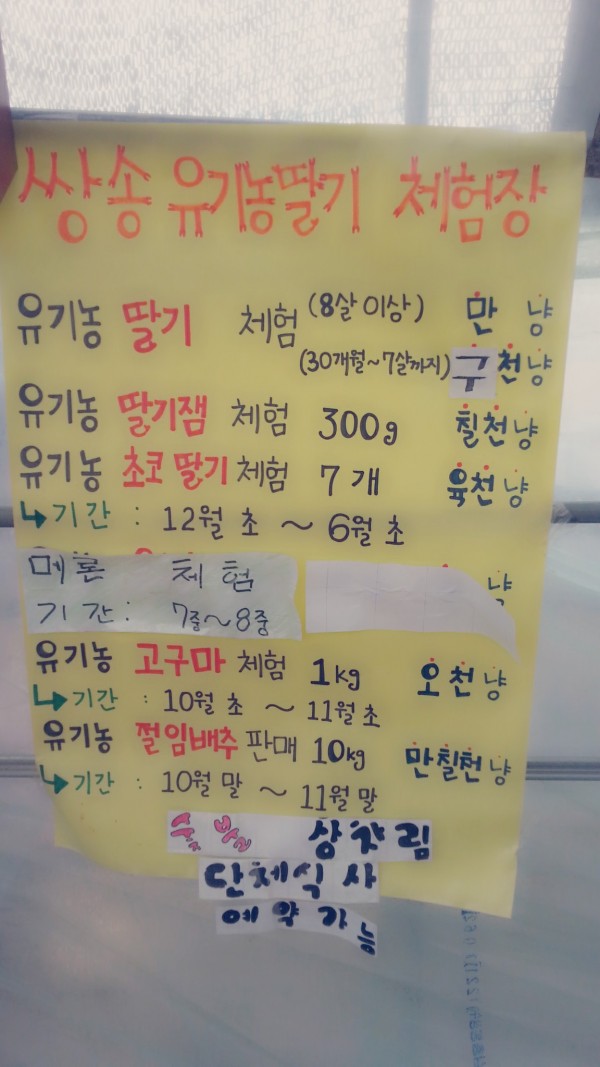 쌍송 유기농딸기 체험장
유기농 딸기 체험 (8살 이상) 만 냥
(30개월~7살까지) 구천냥
유기농 딸기잼 체험 300g 칠천냥
유기농 초코 딸기 체험 7개 육천냥
↳기간 : 12월 초 ~ 6월 초
메론 체험 냥
기간: 7중~8중
유기농 고구마 체험 1kg 오천냥
↳기간 : 10월 초 ~ 11월 초
유기농 절임배추 판매 10kg 만칠천냥
↳기간 : 10월 말 ~ 11월 말
상차림
단체식사
예약가능